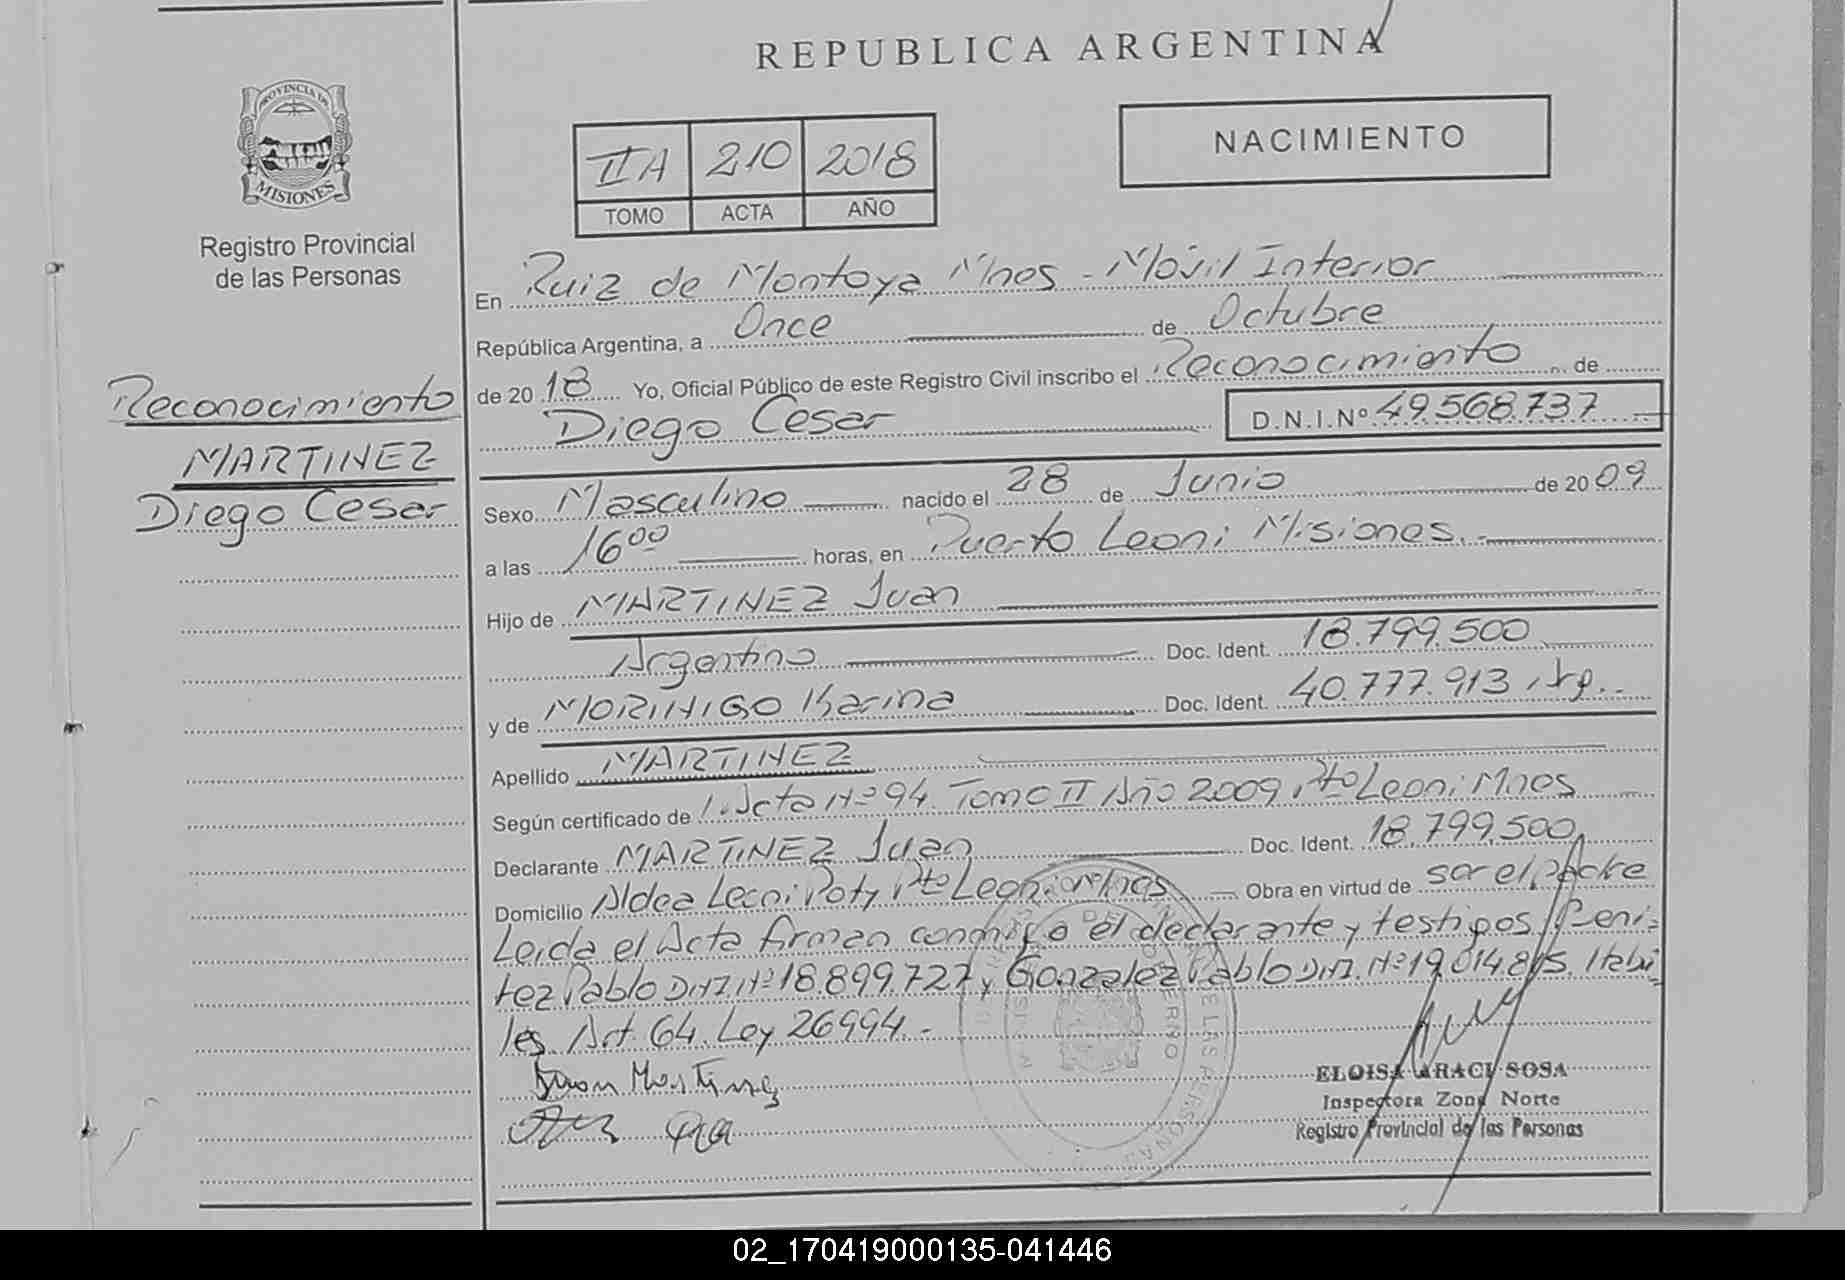 REPUBLICA ARGENTINA
PROVINCIA DE
MISIONES
Registro Provincial
de las Personas
IIA 210 2018
TOMO ACTA AÑO
NACIMIENTO
Reconocimiento
MARTINEZ
Diego Cesar
En Ruiz de Montoya Mnes - Móvil Interior
República Argentina, a Once de Octubre
de 20 18 Yo, Oficial Público de este Registro Civil inscribo el Reconocimiento de
Diego Cesar D.N.I.Nº 49.568.737
Sexo Masculino nacido el 28 de Junio de 20 09
a las 16 00 horas, en Puerto Leoni Misiones.
Hijo de MARTINEZ Juan
Argentino Doc. Ident. 18.799.500
y de MORINIGO Karina Doc. Ident. 40.777.913 Arg.
Apellido MARTINEZ
Según certificado de Acta Nº 94 Tomo II Año 2009 Pto Leoni Mnes
Declarante MARTINEZ Juan Doc. Ident. 18.799.500
Domicilio Aldea Leoni Poty Pto Leoni Mnes Obra en virtud de ser el padre
Leida el Acta firman conmigo el declarante y testigos Beni-
tez Pablo DNI Nº 18.899.727 y Gonzalez Pablo DNI Nº 19.014.815. Habi
les Art. 64 Ley 26994.-
Juan Martinez
ELOISA ARACI SOSA
Inspectora Zona Norte
Registro Provincial de las Personas
02_170419000135-041446